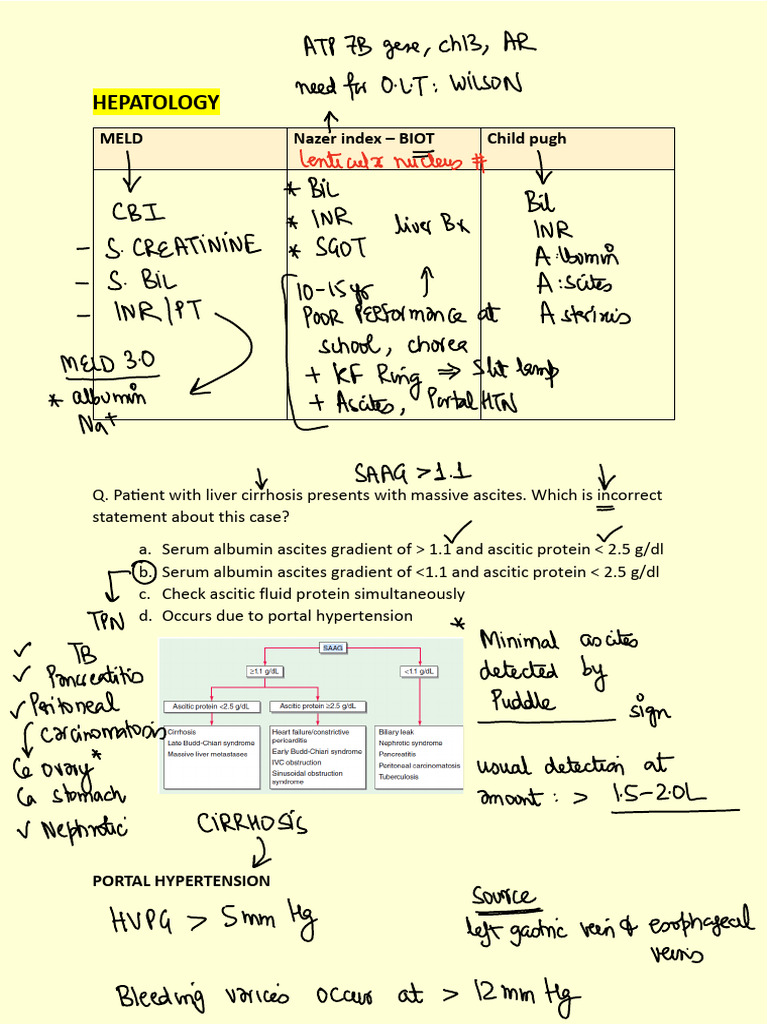 ATP 7B gene, ch13, AR
need for O.L.T: WILSON
HEPATOLOGY
MELD
Nazer index – BIOT
Child pugh
CBI
- S. CREATININE
- S. BIL
- INR/PT
MELD 3.0
* albumin
Na+
lenticular nucleus #
* BIL
* INR
* SGOT
liver Bx
10-15 yr
POOR PERFORMANCE at
school, chorea
+ KF Ring ⇒ Slit lamp
+ Ascites, Portal HTN
Bil
INR
A:lbumin
A:scites
Asterixis
SAAG >1.1
Q. Patient with liver cirrhosis presents with massive ascites. Which is incorrect
statement about this case?
a. Serum albumin ascites gradient of > 1.1 and ascitic protein < 2.5 g/dl
b. Serum albumin ascites gradient of <1.1 and ascitic protein < 2.5 g/dl
c. Check ascitic fluid protein simultaneously
d. Occurs due to portal hypertension
TPN
TB
Pancreatitis
Peritoneal
Carcinomatosis
Ca ovary*
Ca stomach
Nephrotic
SAAG
≥1.1 g/dL
<1.1 g/dL
Ascitic protein <2.5 g/dL
Ascitic protein ≥2.5 g/dL
Cirrhosis
Late Budd-Chiari syndrome
Massive liver metastases
Heart failure/constrictive
pericarditis
Early Budd-Chiari syndrome
IVC obstruction
Sinusoidal obstruction
syndrome
Biliary leak
Nephrotic syndrome
Pancreatitis
Peritoneal carcinomatosis
Tuberculosis
* Minimal ascites
detected by
Puddle sign
usual detection at
amount: > 1.5-2.0L
CIRRHOSIS
PORTAL HYPERTENSION
HVPG > 5mm Hg
Source
left gastric vein & esophageal
veins
Bleeding varices occur at > 12mm Hg